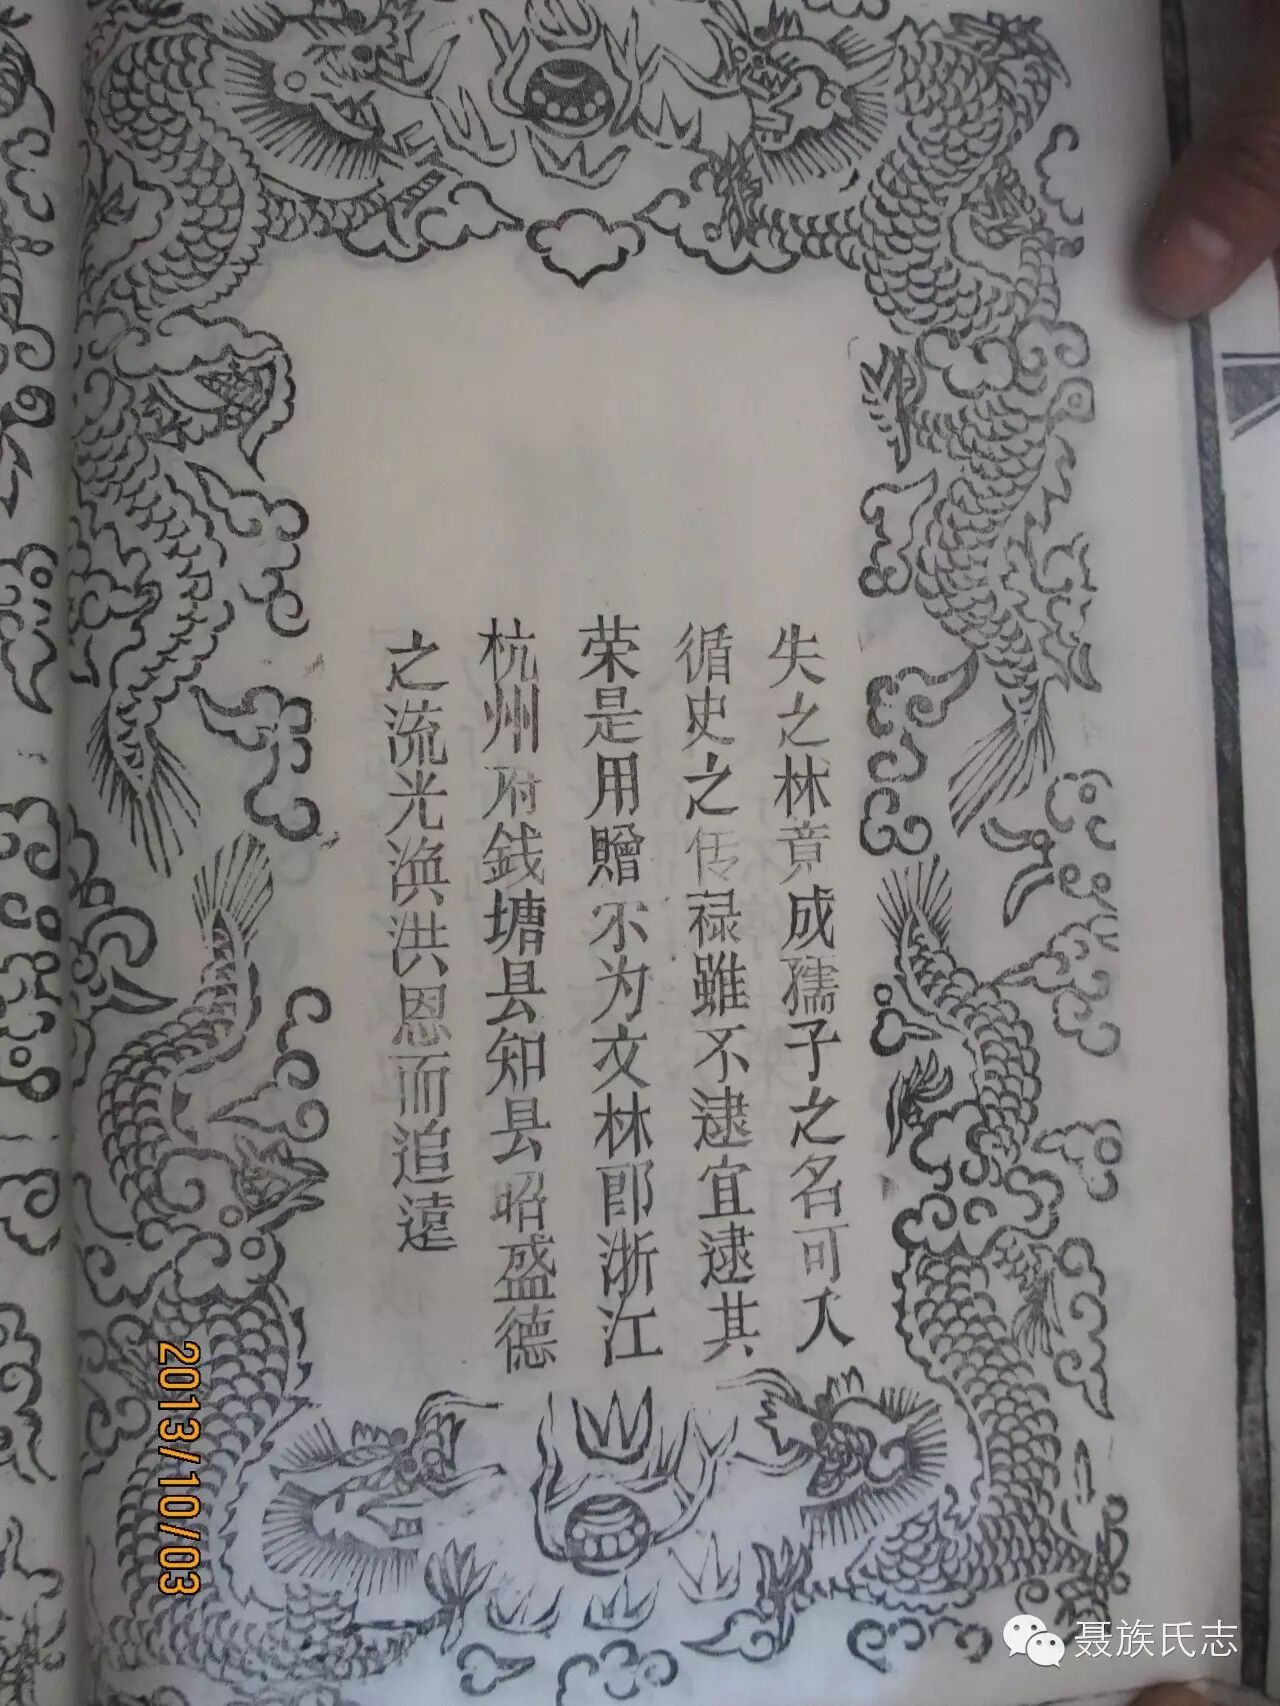 失之林竟成孺子之名可入
循史之传禄雖不逮宜逮其
荣是用贈尔为文林郎浙江
杭州府錢塘县知县昭盛德
之流光渙洪恩而追遠
2013/10/03
聂族氏志